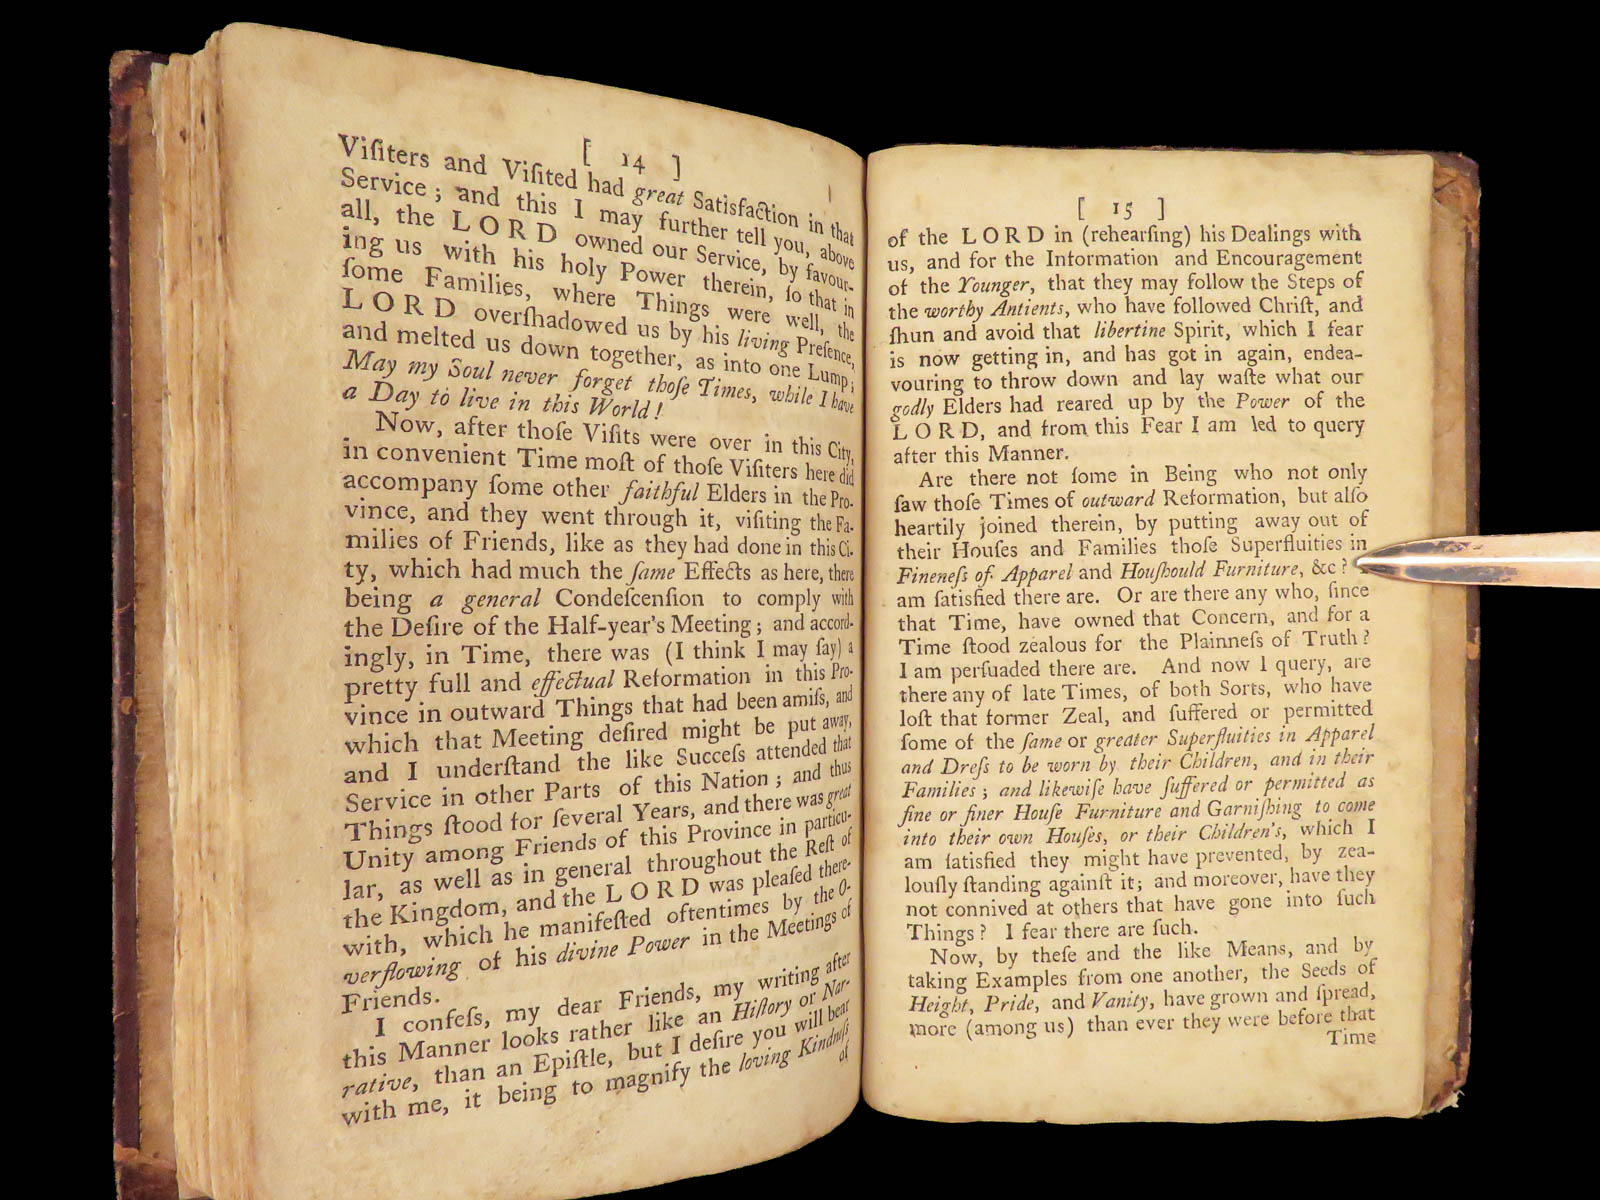 [ 14 ]
Viſiters and Viſited had great Satisfaction in that
Service; and this I may further tell you, above
all, the LORD owned our Service, by favour-
ing us with his holy Power therein, ſo that in
ſome Families, where Things were well, the
LORD overſhadowed us by his living Preſence,
and melted us down together, as into one Lump;
May my Soul never forget thoſe Times, while I have
a Day to live in this World!
Now, after thoſe Viſits were over in this City,
in convenient Time moſt of thoſe Viſiters here did
accompany ſome other faithful Elders in the Pro-
vince, and they went through it, viſiting the Fa-
milies of Friends, like as they had done in this Ci-
ty, which had much the ſame Effects as here, there
being a general Condeſcenſion to comply with
the Deſire of the Half-year's Meeting; and accord-
ingly, in Time, there was (I think I may ſay) a
pretty full and effectual Reformation in this Pro-
vince in outward Things that had been amiſs, and
which that Meeting deſired might be put away,
and I underſtand the like Succeſs attended that
Service in other Parts of this Nation; and thus
Things ſtood for ſeveral Years, and there was great
Unity among Friends of this Province in particu-
lar, as well as in general throughout the Reſt of
the Kingdom, and the LORD was pleaſed there-
with, which he manifeſted oftentimes by the O-
verflowing of his divine Power in the Meetings of
Friends.
I confeſs, my dear Friends, my writing after
this Manner looks rather like an Hiſtory or Nar-
rative, than an Epiſtle, but I deſire you will bear
with me, it being to magnify the loving Kindneſs
of
[ 15 ]
of the LORD in (rehearſing) his Dealings with
us, and for the Information and Encouragement
of the Younger, that they may follow the Steps of
the worthy Antients, who have followed Chriſt, and
ſhun and avoid that libertine Spirit, which I fear
is now getting in, and has got in again, endea-
vouring to throw down and lay waſte what our
godly Elders had reared up by the Power of the
LORD, and from this Fear I am led to query
after this Manner.
Are there not ſome in Being who not only
ſaw thoſe Times of outward Reformation, but alſo
heartily joined therein, by putting away out of
their Houſes and Families thoſe Superfluities in
Fineneſs of Apparel and Houſhould Furniture, &c?
am ſatisfied there are. Or are there any who, ſince
that Time, have owned that Concern, and for a
Time ſtood zealous for the Plainneſs of Truth?
I am perſuaded there are. And now I query, are
there any of late Times, of both Sorts, who have
loſt that former Zeal, and ſuffered or permitted
ſome of the ſame or greater Superfluities in Apparel
and Dreſs to be worn by their Children, and in their
Families; and likewiſe have ſuffered or permitted as
fine or finer Houſe Furniture and Garniſhing to come
into their own Houſes, or their Children's, which I
am ſatisfied they might have prevented, by zea-
louſly ſtanding againſt it; and moreover, have they
not connived at others that have gone into ſuch
Things? I fear there are ſuch.
Now, by theſe and the like Means, and by
taking Examples from one another, the Seeds of
Height, Pride, and Vanity, have grown and ſpread,
more (among us) than ever they were before that
Time